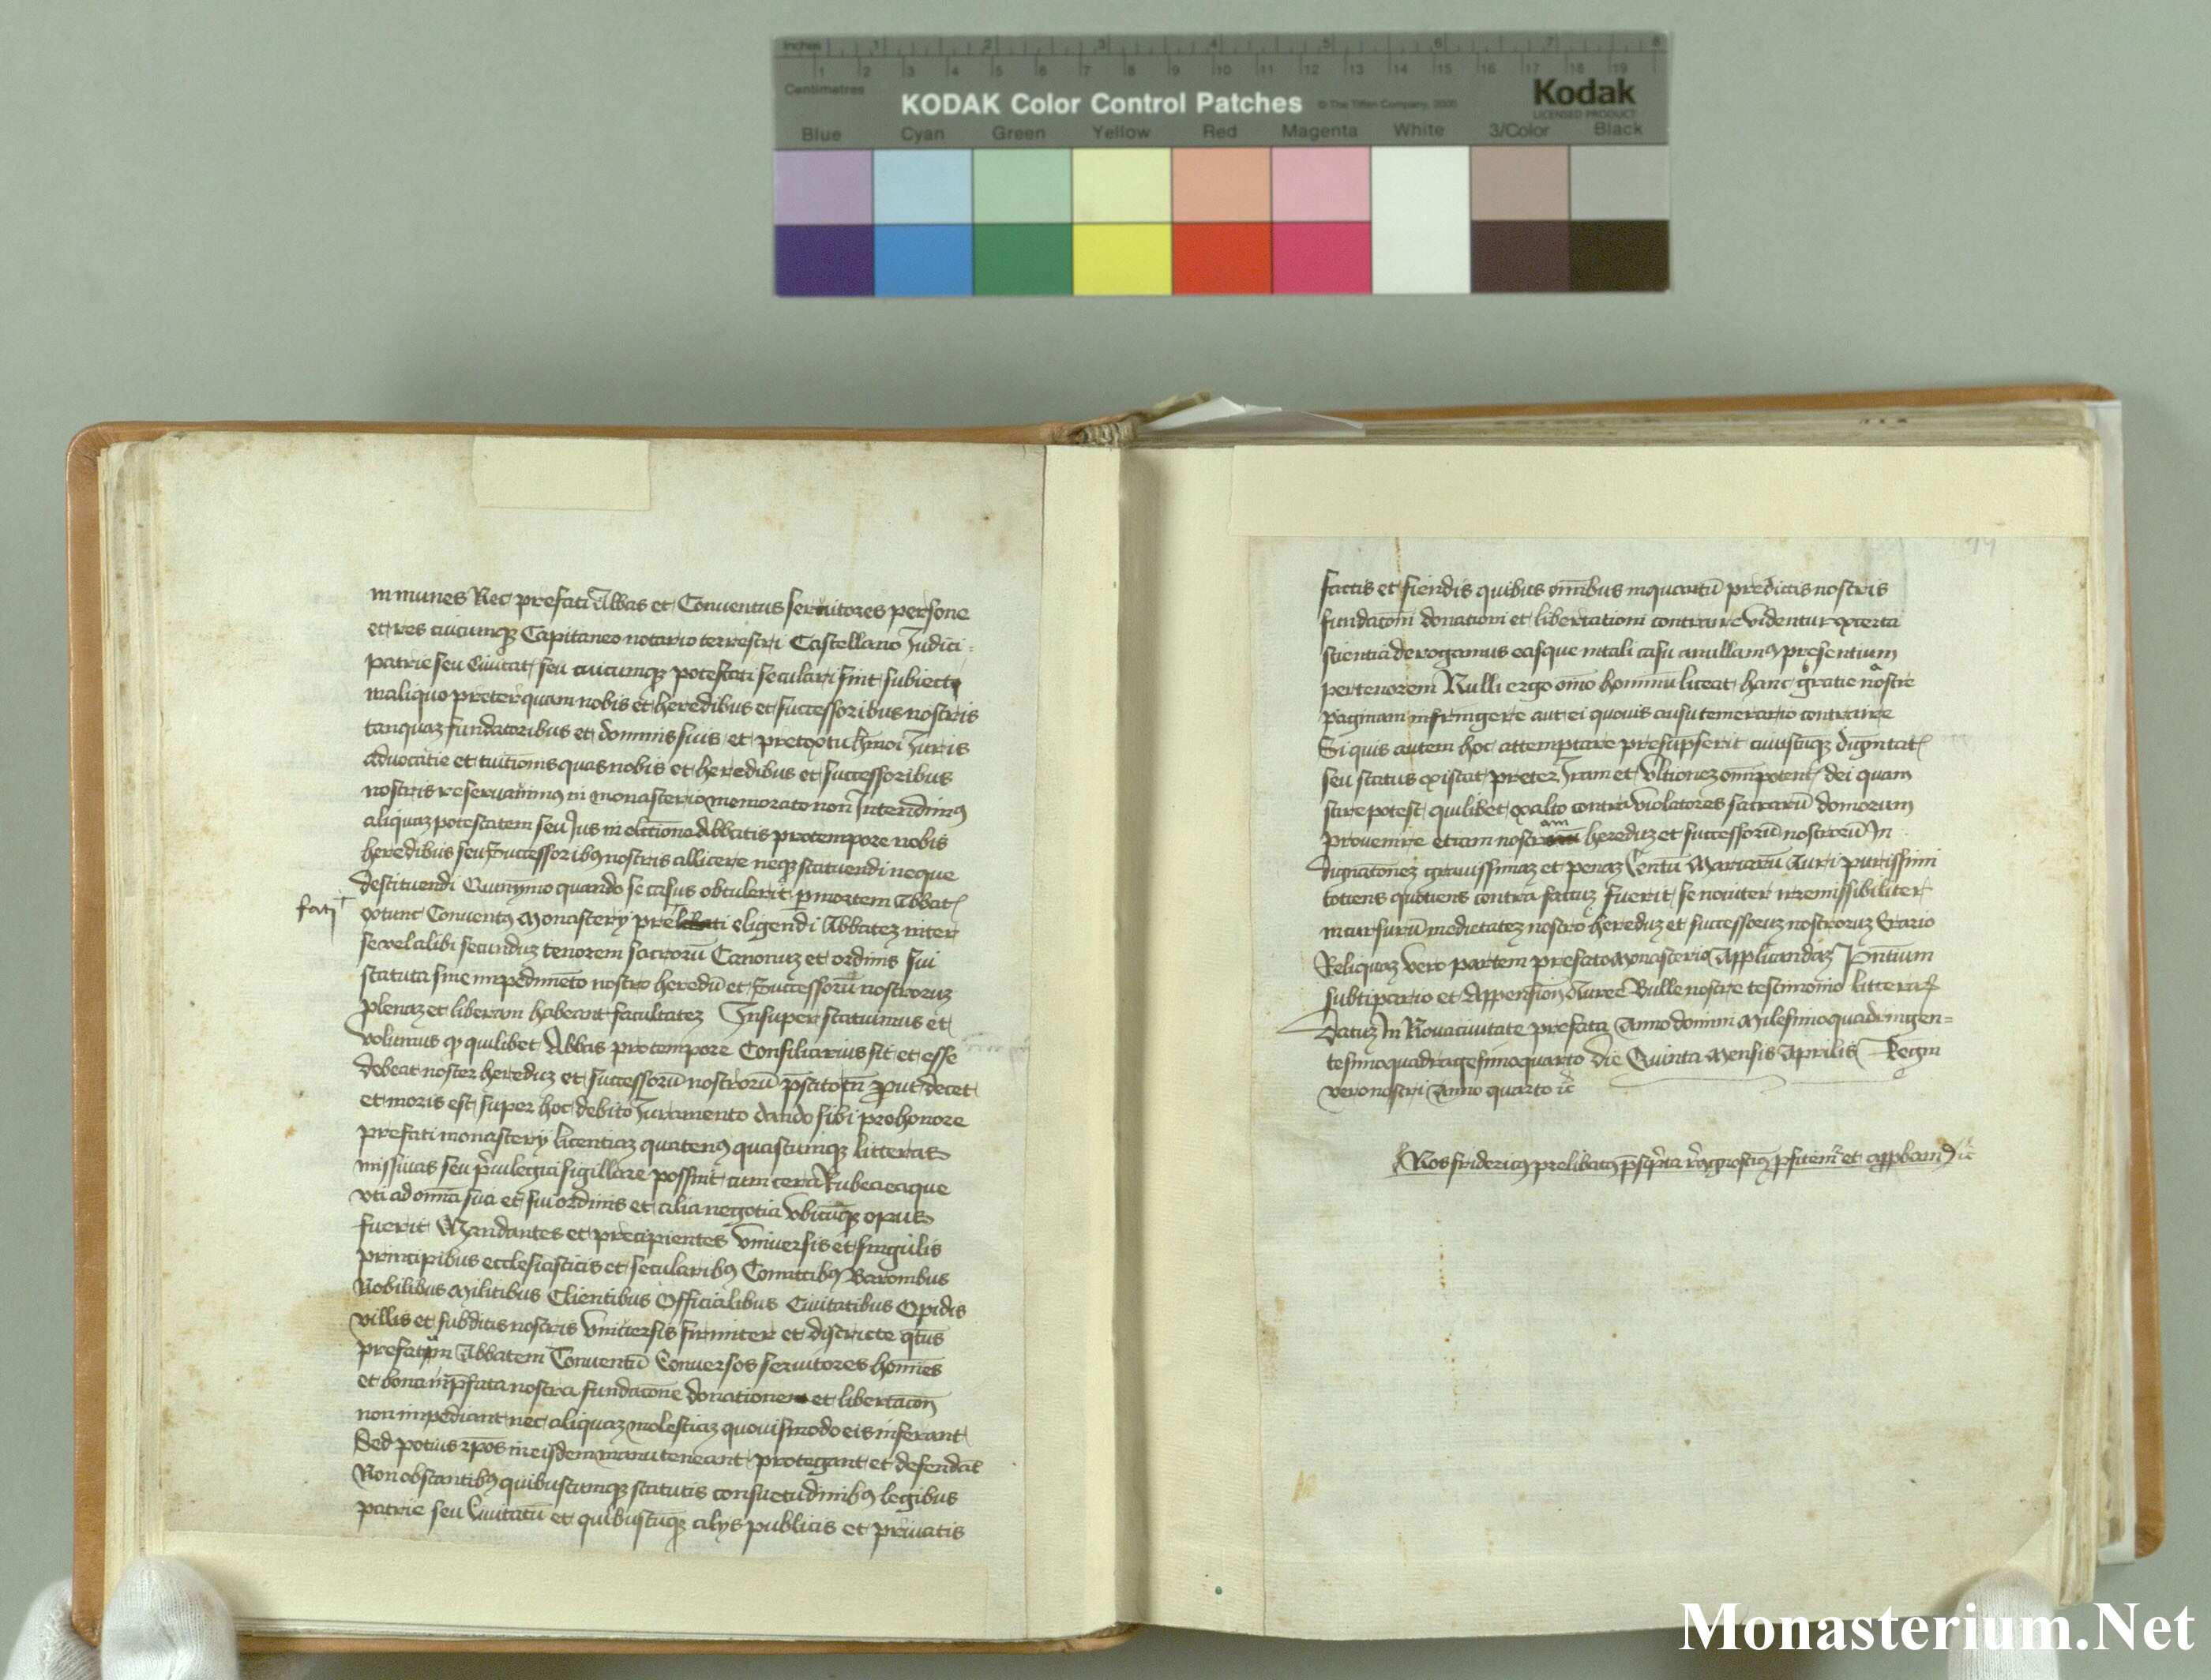 Inches 1 2 3 4 5 6 7 8
1 2 3 4 5 6 7 8 9 10 11 12 13 14 15 16 17 18 19
Centimetres
KODAK Color Control Patches © The Tiffen Company, 2000 Kodak
LICENSED PRODUCT
Blue Cyan Green Yellow Red Magenta White 3/Color Black
inmunes Nec prefati Abbas et Conuentus seruitores persone
et res cuicumqꝫ Capitaneo notario terrestri Castellano Iudici
patrie seu Ciuitat seu cuicumqꝫ potestati seculari sint subiecte
in aliquo preter quam nobis et heredibus et successoribus nostris
tanquaꝫ fundatoribus et dominis suis et pretextu hmōi Iuris
aduocatie et tuitionis quas nobis et heredibus et successoribus
nostris reseruauimꝰ in monasterio memorato non Intendimꝰ
aliquaꝫ potestatem seu Jus in electione Abbatis pro tempore nobis
heredibus seu Successoribꝰ nostris allicere neqꝫ statuendi neque
destituendi Quinymo quando se casus obtulerit p mortem Abbat
fati
extunc Conuentꝰ Monastery pre eligendi Abbateꝫ inter
se vel alibi secunduꝫ tenorem sacrorū Canonuꝫ et ordinis sui
statuta sine impedimēto nostro heredū et Successorū nostroruꝫ
plenaꝫ et liberam habeant facultateꝫ Insuper statuimus et
volumus qꝫ quilibet Abbas pro tempore Consiliarius sit et esse
debeat noster hereduꝫ et successorū nostrorū p̄stito tn̄ prout decet
et moris est super hoc debito Iuramento dando sibi pro honore
prefati monastery licentiaꝫ quatenꝰ quascumqꝫ litteras
missiuas seu p̄uilegia sigillare possint cum cera Rubea eaque
vti ad om̄ia sua et sui ordinis et alia negotia vbicūqꝫ opus
fuerit Mandantes et precipientes vniuersis et singulis
principibus ecclesiasticis et secularibꝰ Comitibꝰ Baronibus
Nobilibus Militibus Clientibus Officialibus Ciuitatibus Opidis
villis et subditis nostris vniuersis firmiter et districte qt̄us
prefatum Abbatem Conuentū Conuersos seruitores homines
et bona in p̄fata nostra fundacōne donatione et libertacōn
non impediant nec aliquaꝫ molestiaꝫ quouismodo eis inferant
Sed potius ip̄os in eisdem manuteneant protegant et defendāt
Non obstantibꝰ quibuscumqꝫ statutis consuetudinibꝰ legibus
patrie seu Ciuitatū et quibuscūqꝫ alys publicis et priuatis
factis et fiendis quibus om̄ibus inquantū predictis nostris
fundacōni donationi et libertationi contraire videntur ex certa
scientia derogamus easque in tali casu anullamꝰ presentium
per tenorem Nulli ergo om̄o hominū liceat hanc gratie nostre
paginam infringere aut ei quouis ausu temerario contraire
Si quis autem hoc attemptare presūpserit cuiuscūqꝫ dignitat
seu status existat preter Iram et vltioneꝫ omnipotent dei quam
scire potest quilibet ex alto contra violatores sacrarū domorum
am
Prouenire etiam nostr hereduꝫ et successorū nostrorū In
dignatōneꝫ grauissimaꝫ et penaꝫ Centū Marcarū Auri purissimi
totiens quotiens contra factuꝫ fuerit se nouiter irremissibiliter
incursurū medietateꝫ nostro hereduꝫ et successoruꝫ nostroruꝫ Erario
Reliquaꝫ vero partem prefato Monasterio Applicandaꝫ Pn̄tium
sub tipario et Appension Auree Bulle nostre testimonio litterar
Datuꝫ In Nouaciuitate prefata Anno domini Milesimo quadringen=
tesimo quadragesimo quarto die Quinta Mensis Aprilis Regni
vero nostri Anno quarto ꝛc
Nos fridericꝰ prelibatꝰ p̄scp̄ta
Monasterium.Net